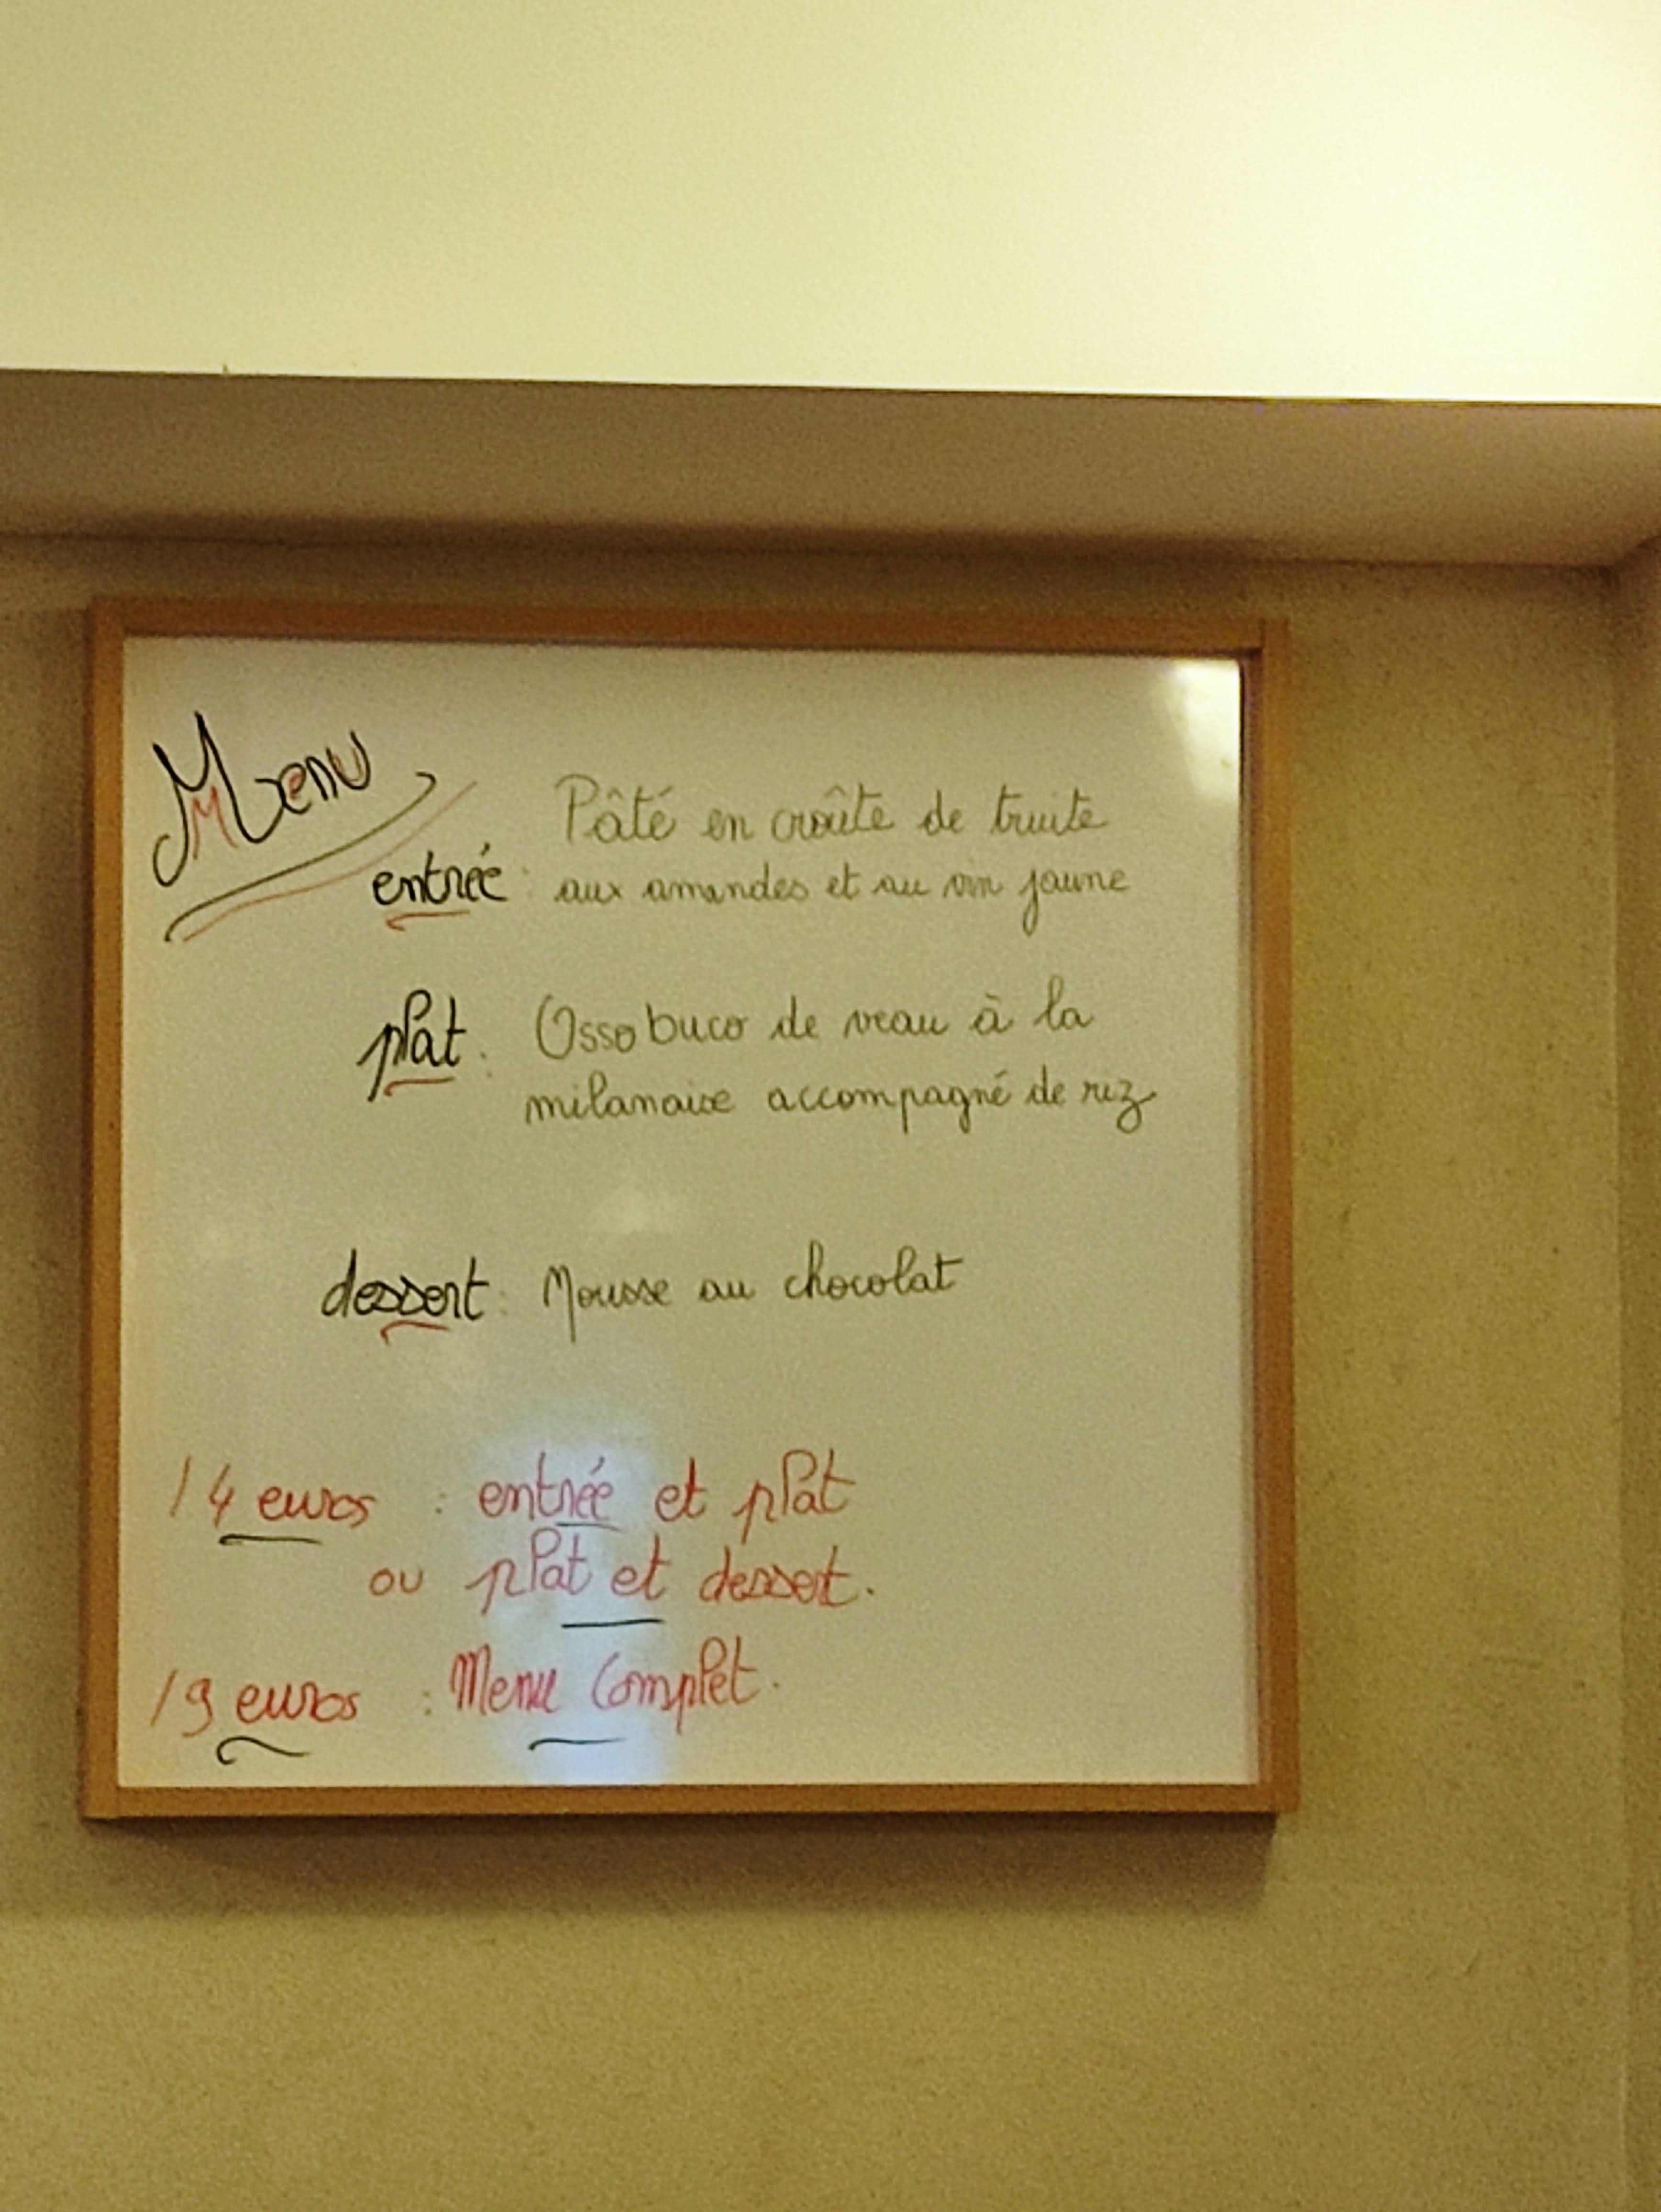 Menu
Pâté en croûte de truite
entrée : aux amandes et au vin jaune
plat : Osso buco de veau à la
milanaise accompagné de riz
dessert : Mousse au chocolat
14 euros : entrée et plat
ou plat et dessert.
19 euros : Menu Complet.